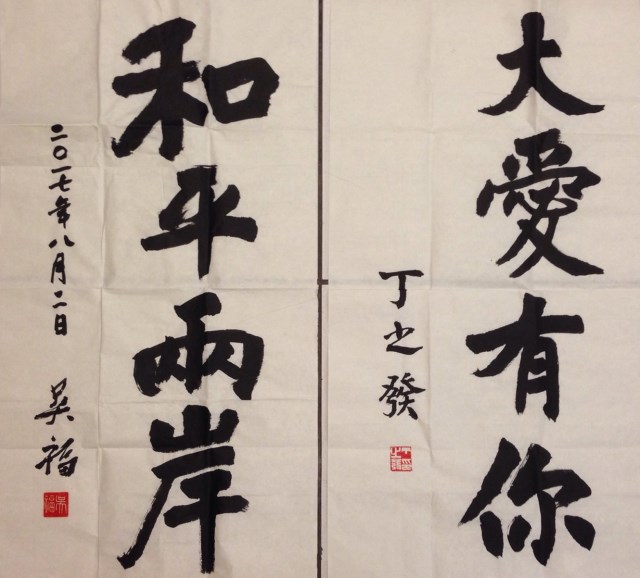 大愛有你
丁之發
和平兩岸
二〇一七年八月二日
吳福
吳福